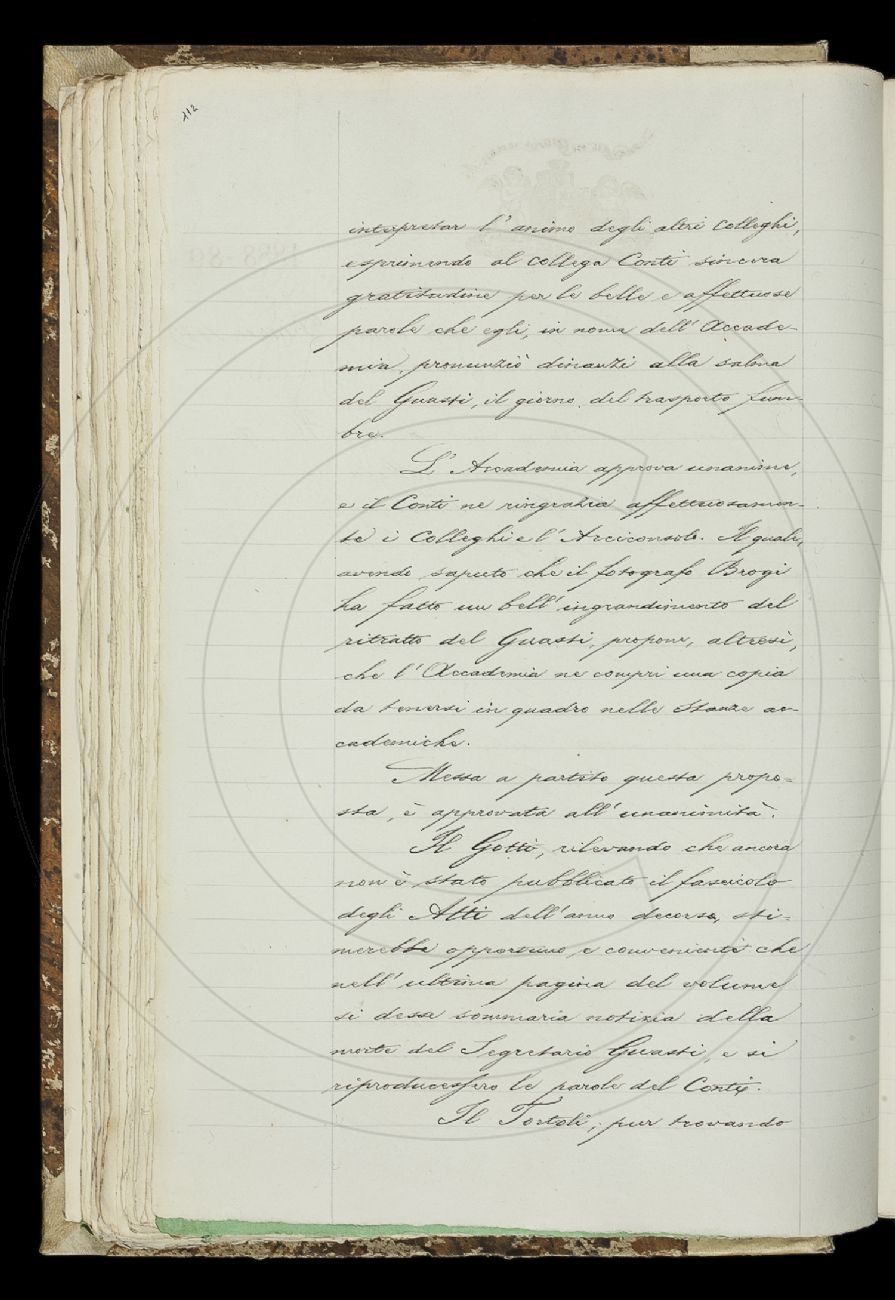 112
interpretar l' animo degli altri colleghi,
esprimendo al collega Conti sincera
gratitudine per le belle e affettuose
parole che egli, in nome dell' Accade-
mia, pronunziò dinanzi alla salma
del Guasti, il giorno del trasporto fune-
bre.
L' Accademia approva unanime,
e il Conti ne ringrazia affettuosamen-
te i Colleghi e l' Arciconsolo. Il quale,
avendo saputo che il fotografo Brogi
ha fatto un bell' ingrandimento del
ritratto del Guasti, propone, altresì,
che l' Accademia ne compri una copia
da tenersi in quadro nelle stanze ac-
cademiche.
Messa a partito questa propo-
sta, è approvata all' unanimità.
Il Gotti, rilevando che ancora
non è stato pubblicato il fascicolo
degli Atti dell' anno decorso, sti-
merebbe opportuno e conveniente che
nell' ultima pagina del volume
si desse sommaria notizia della
morte del Segretario Guasti, e si
riproducessero le parole del Conti.
Il Tortoli, pur trovando